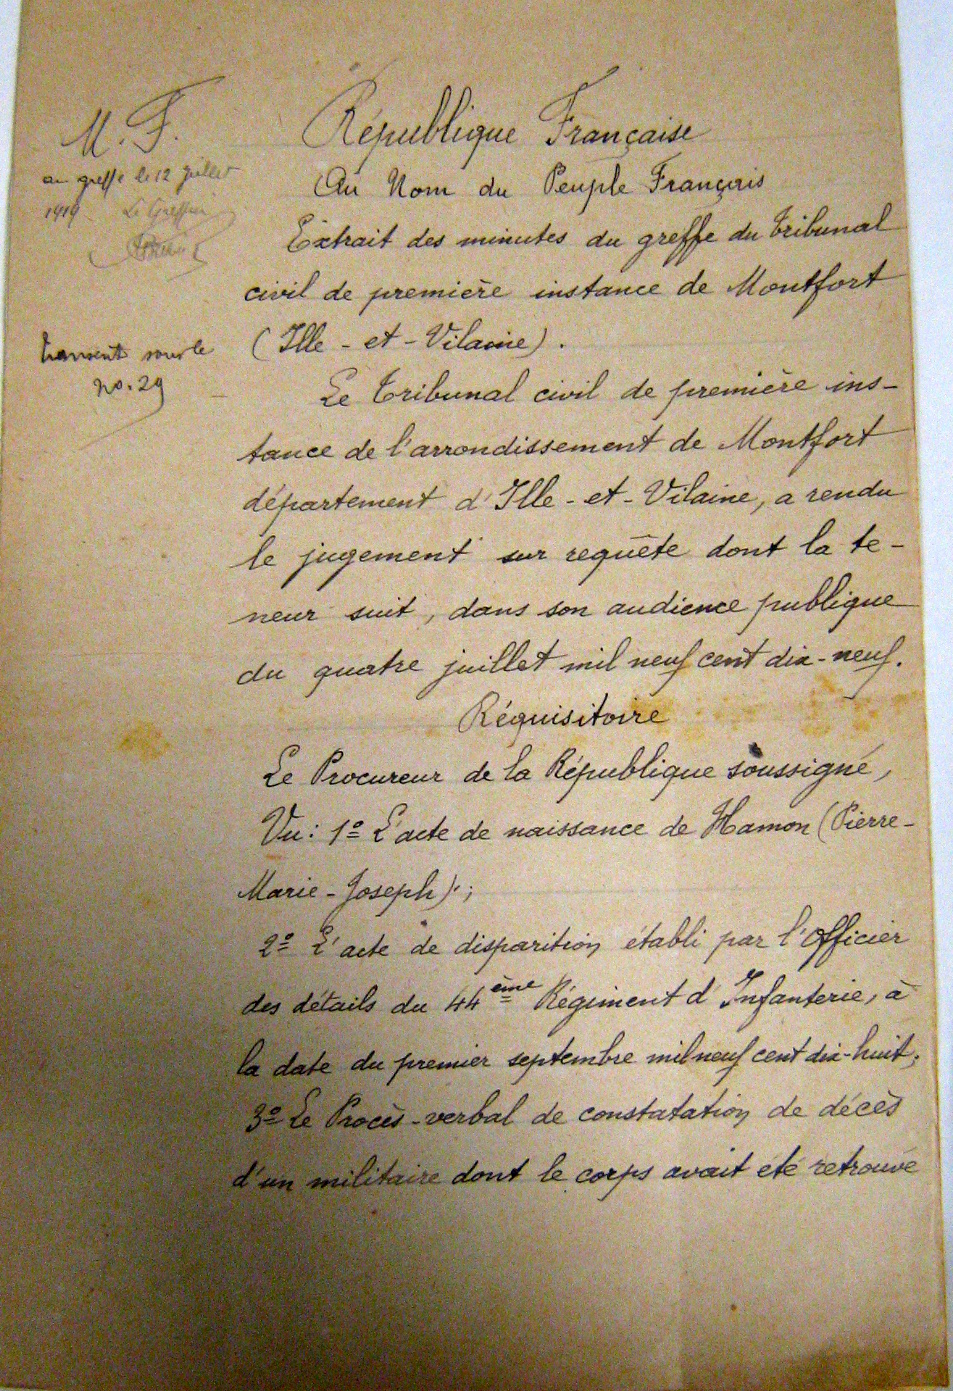 M. F.
au greffe le 12 juillet
1919 Le Greffier
transcrit sous le
no. 29
République Française
Au Nom du Peuple Français
Extrait des minutes du greffe du Tribunal
civil de première instance de Montfort
(Ille-et-Vilaine).
Le Tribunal civil de première ins-
tance de l'arrondissement de Montfort
département d'Ille-et-Vilaine, a rendu
le jugement sur requête dont la te-
neur suit, dans son audience publique
du quatre juillet mil neuf cent dix-neuf.
Réquisitoire
Le Procureur de la République soussigné,
Vu: 1º L'acte de naissance de Hamon (Pierre-
Marie-Joseph);
2º L'acte de disparition établi par l'Officier
des détails du 44ème Régiment d'Infanterie, à
la date du premier septembre mil neuf cent dix-huit;
3º Le Procès-verbal de constatation de décès
d'un militaire dont le corps avait été retrouvé